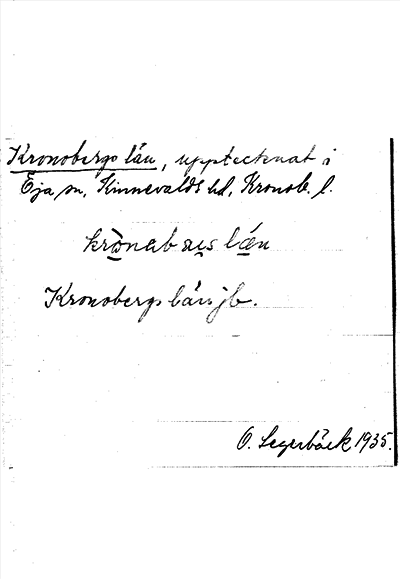 Kronobergs län, upptecknat i
Eja sn, Kinnevalds hd, Kronob. l.
län
Kronobergs läns jb.
O. Segerbäck 1935.